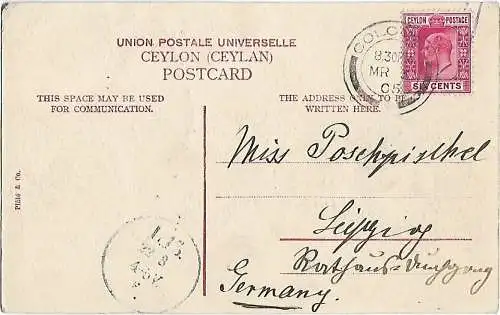 UNION POSTALE UNIVERSELLE
CEYLON (CEYLAN)
POSTCARD
THIS SPACE MAY BE USED
FOR COMMUNICATION.
THE ADDRESS ONLY TO BE
WRITTEN HERE.
CEYLON POSTAGE
SIX CENTS
COLO
8.30
MR
05
Plâté & Co.
Miss Poschpisthel
Leipzig
Rathaus-
Germany.
L.13.